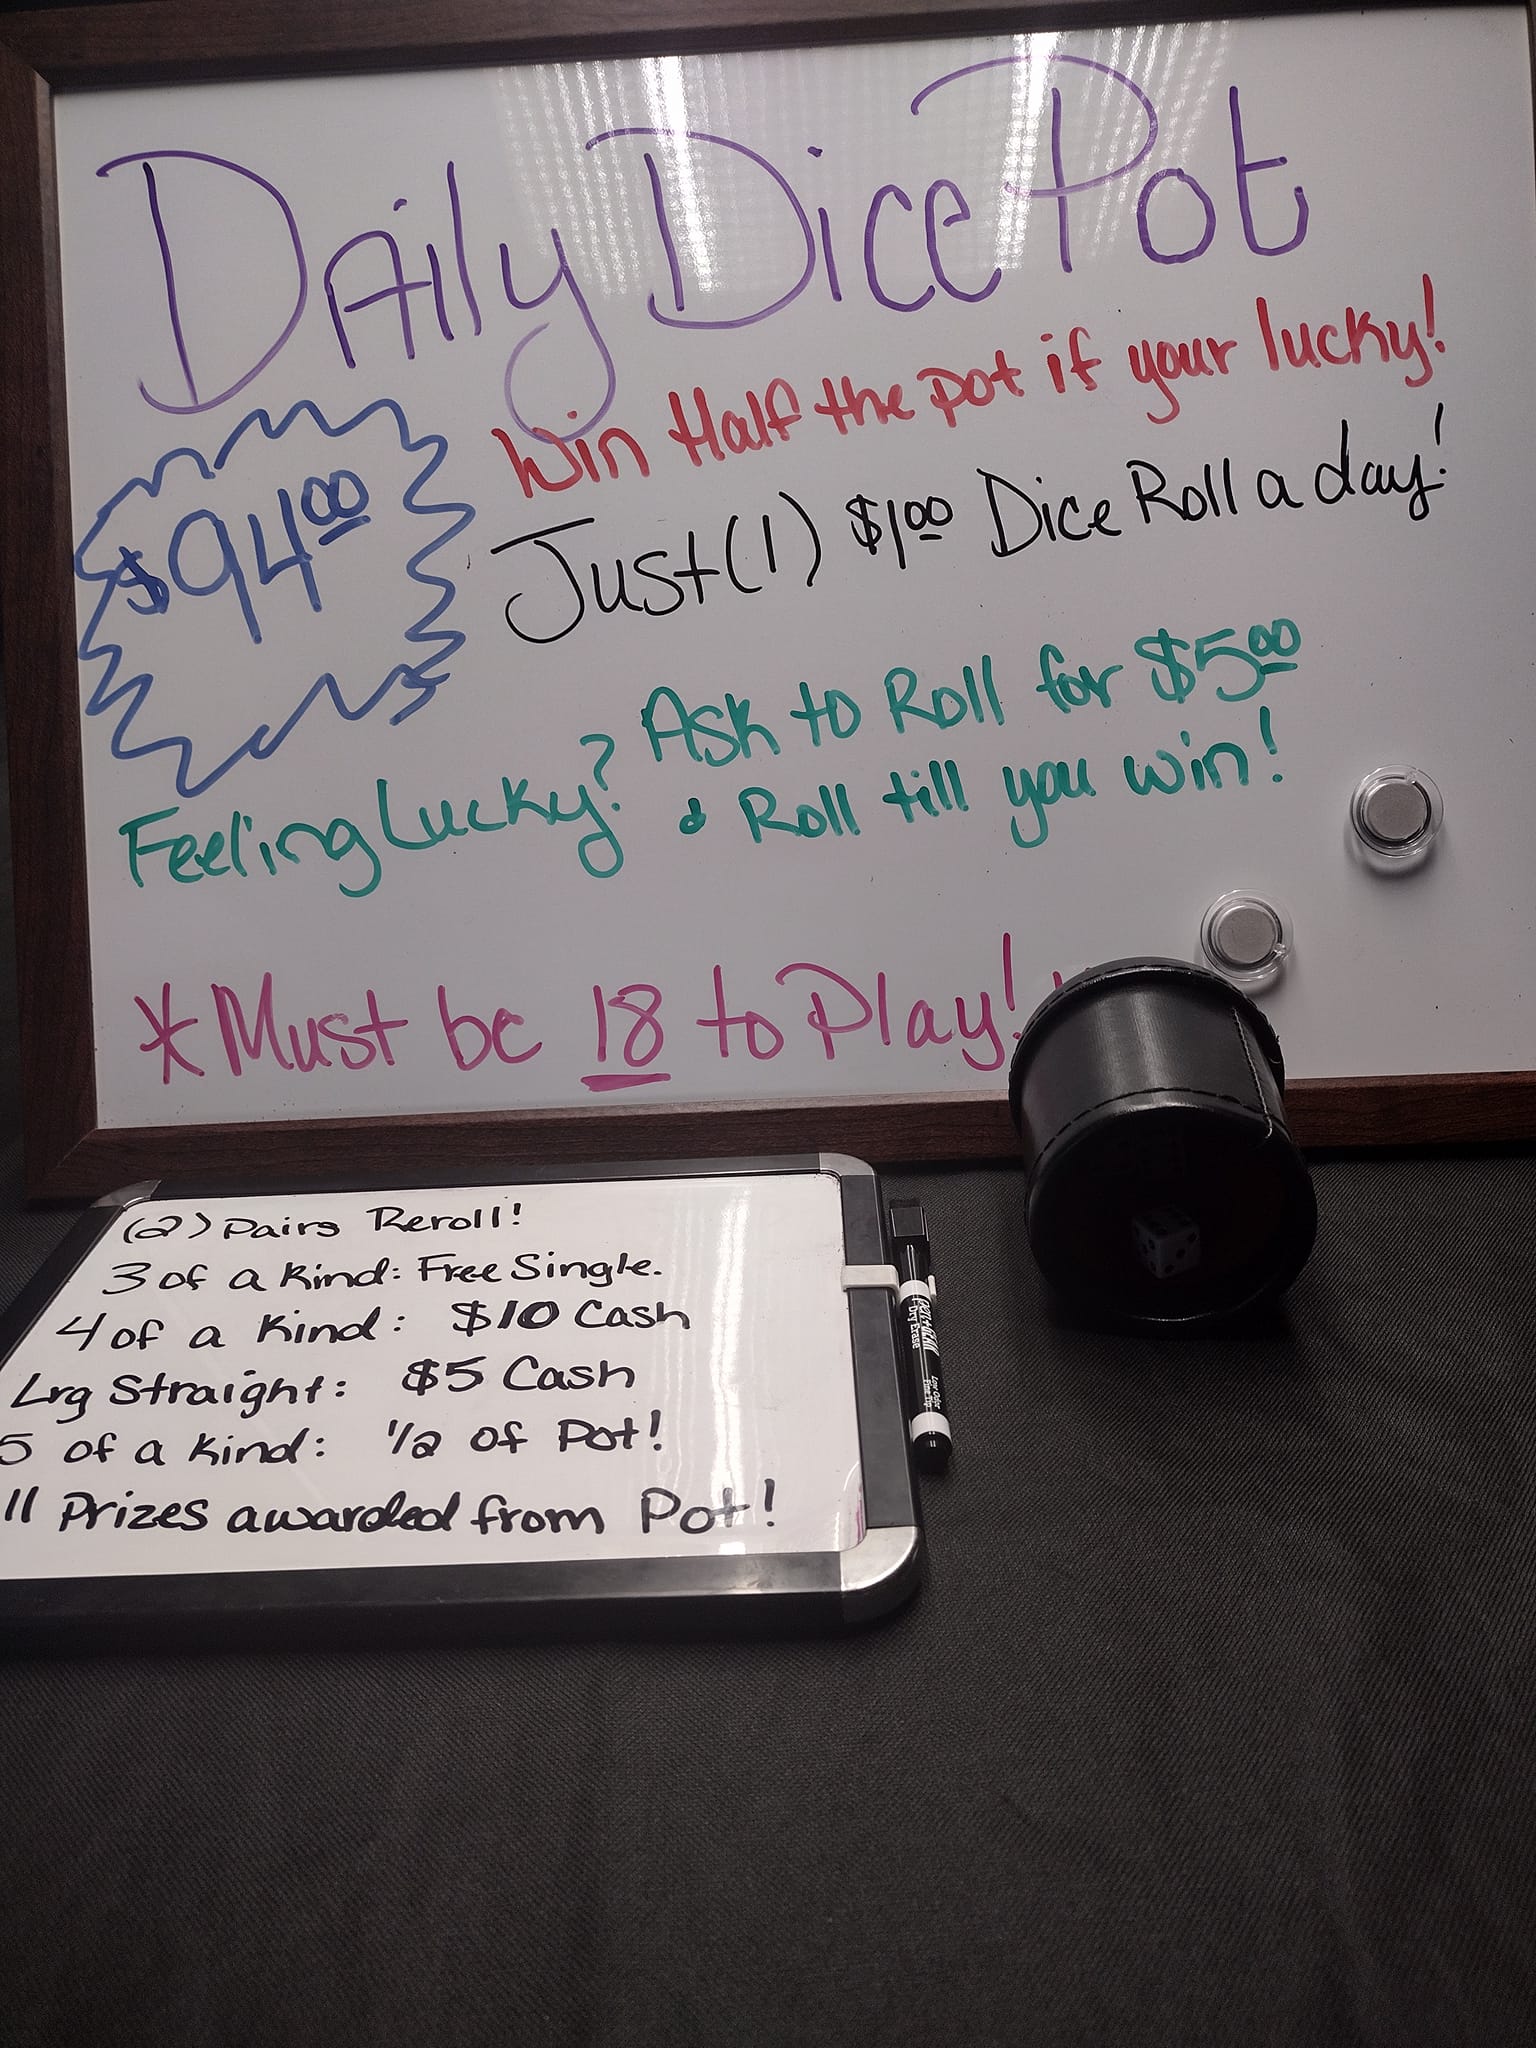 Daily Dice Pot
$94.00
Win Half the pot if your lucky!
Just (1) $1.00 Dice Roll a day!
Feeling Lucky? Ask to Roll for $5.00
& Roll till you win!
*Must be 18 to Play!
(2) Pairs Reroll!
3 of a Kind: Free Single.
4 of a Kind: $10 Cash
Lrg Straight: $5 Cash
5 of a Kind: 1/2 of Pot!
ll Prizes awarded from Pot!
Dry Erase
Low Odor
Fine Tip